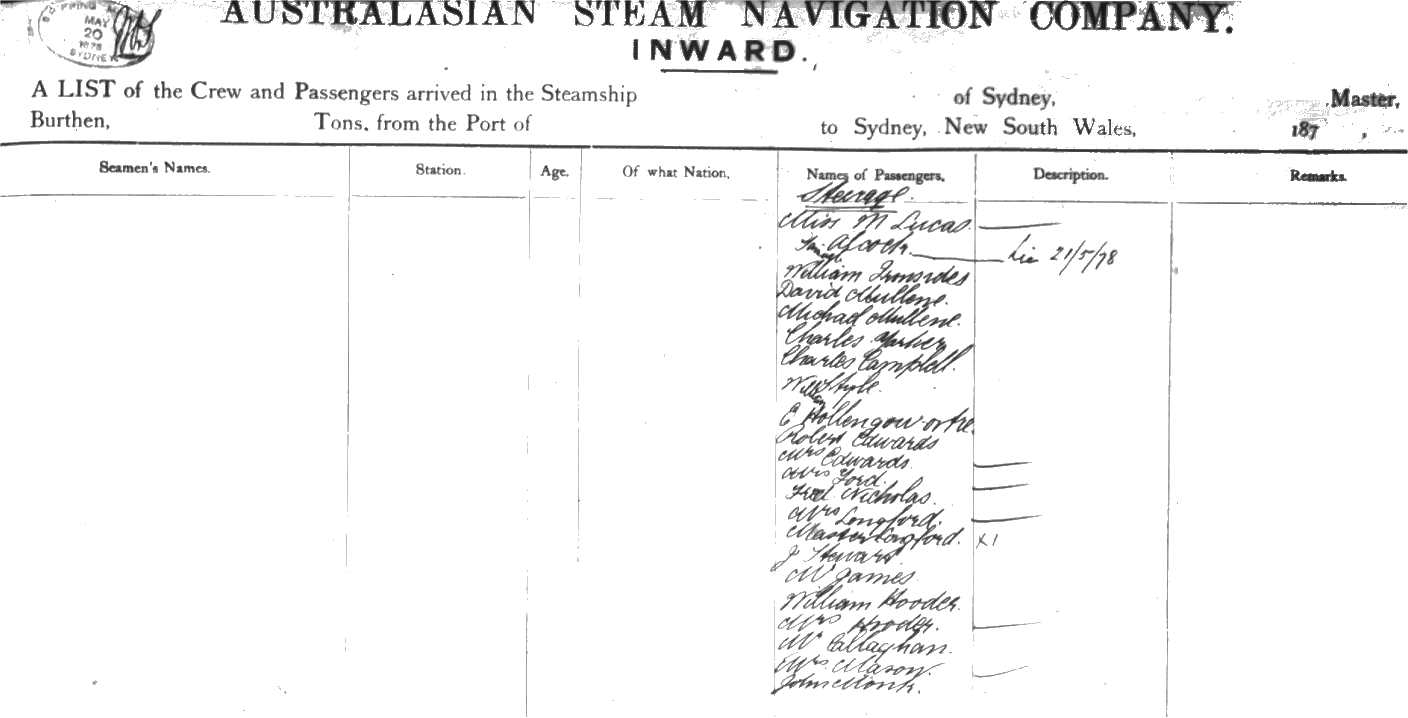 SHIPPING
MAY
20
1878
SYDNEY
AUSTRALASIAN STEAM NAVIGATION COMPANY.
INWARD.
A LIST of the Crew and Passengers arrived in the Steamship of Sydney, Master,
Burthen, Tons, from the Port of to Sydney, New South Wales, 187 ,
Seamen's Names. Station. Age. Of what Nation, Names of Passengers, Description. Remarks.
Steerage.
Miss M Lucas.
Alcock. 21/5/78
William Ironsides
David Mullene.
Michael Mullene.
Charles
Charles Campbell.
Style.
E
Robert Edwards
Mrs Edwards.
Mrs Ford.
Fred Nicholas.
Mrs Longford.
Master Longford. X1
J Stewart
Mr James
William Hooder.
Mrs Hooder.
Mr Callaghan.
Mrs Mason.
John Monk.